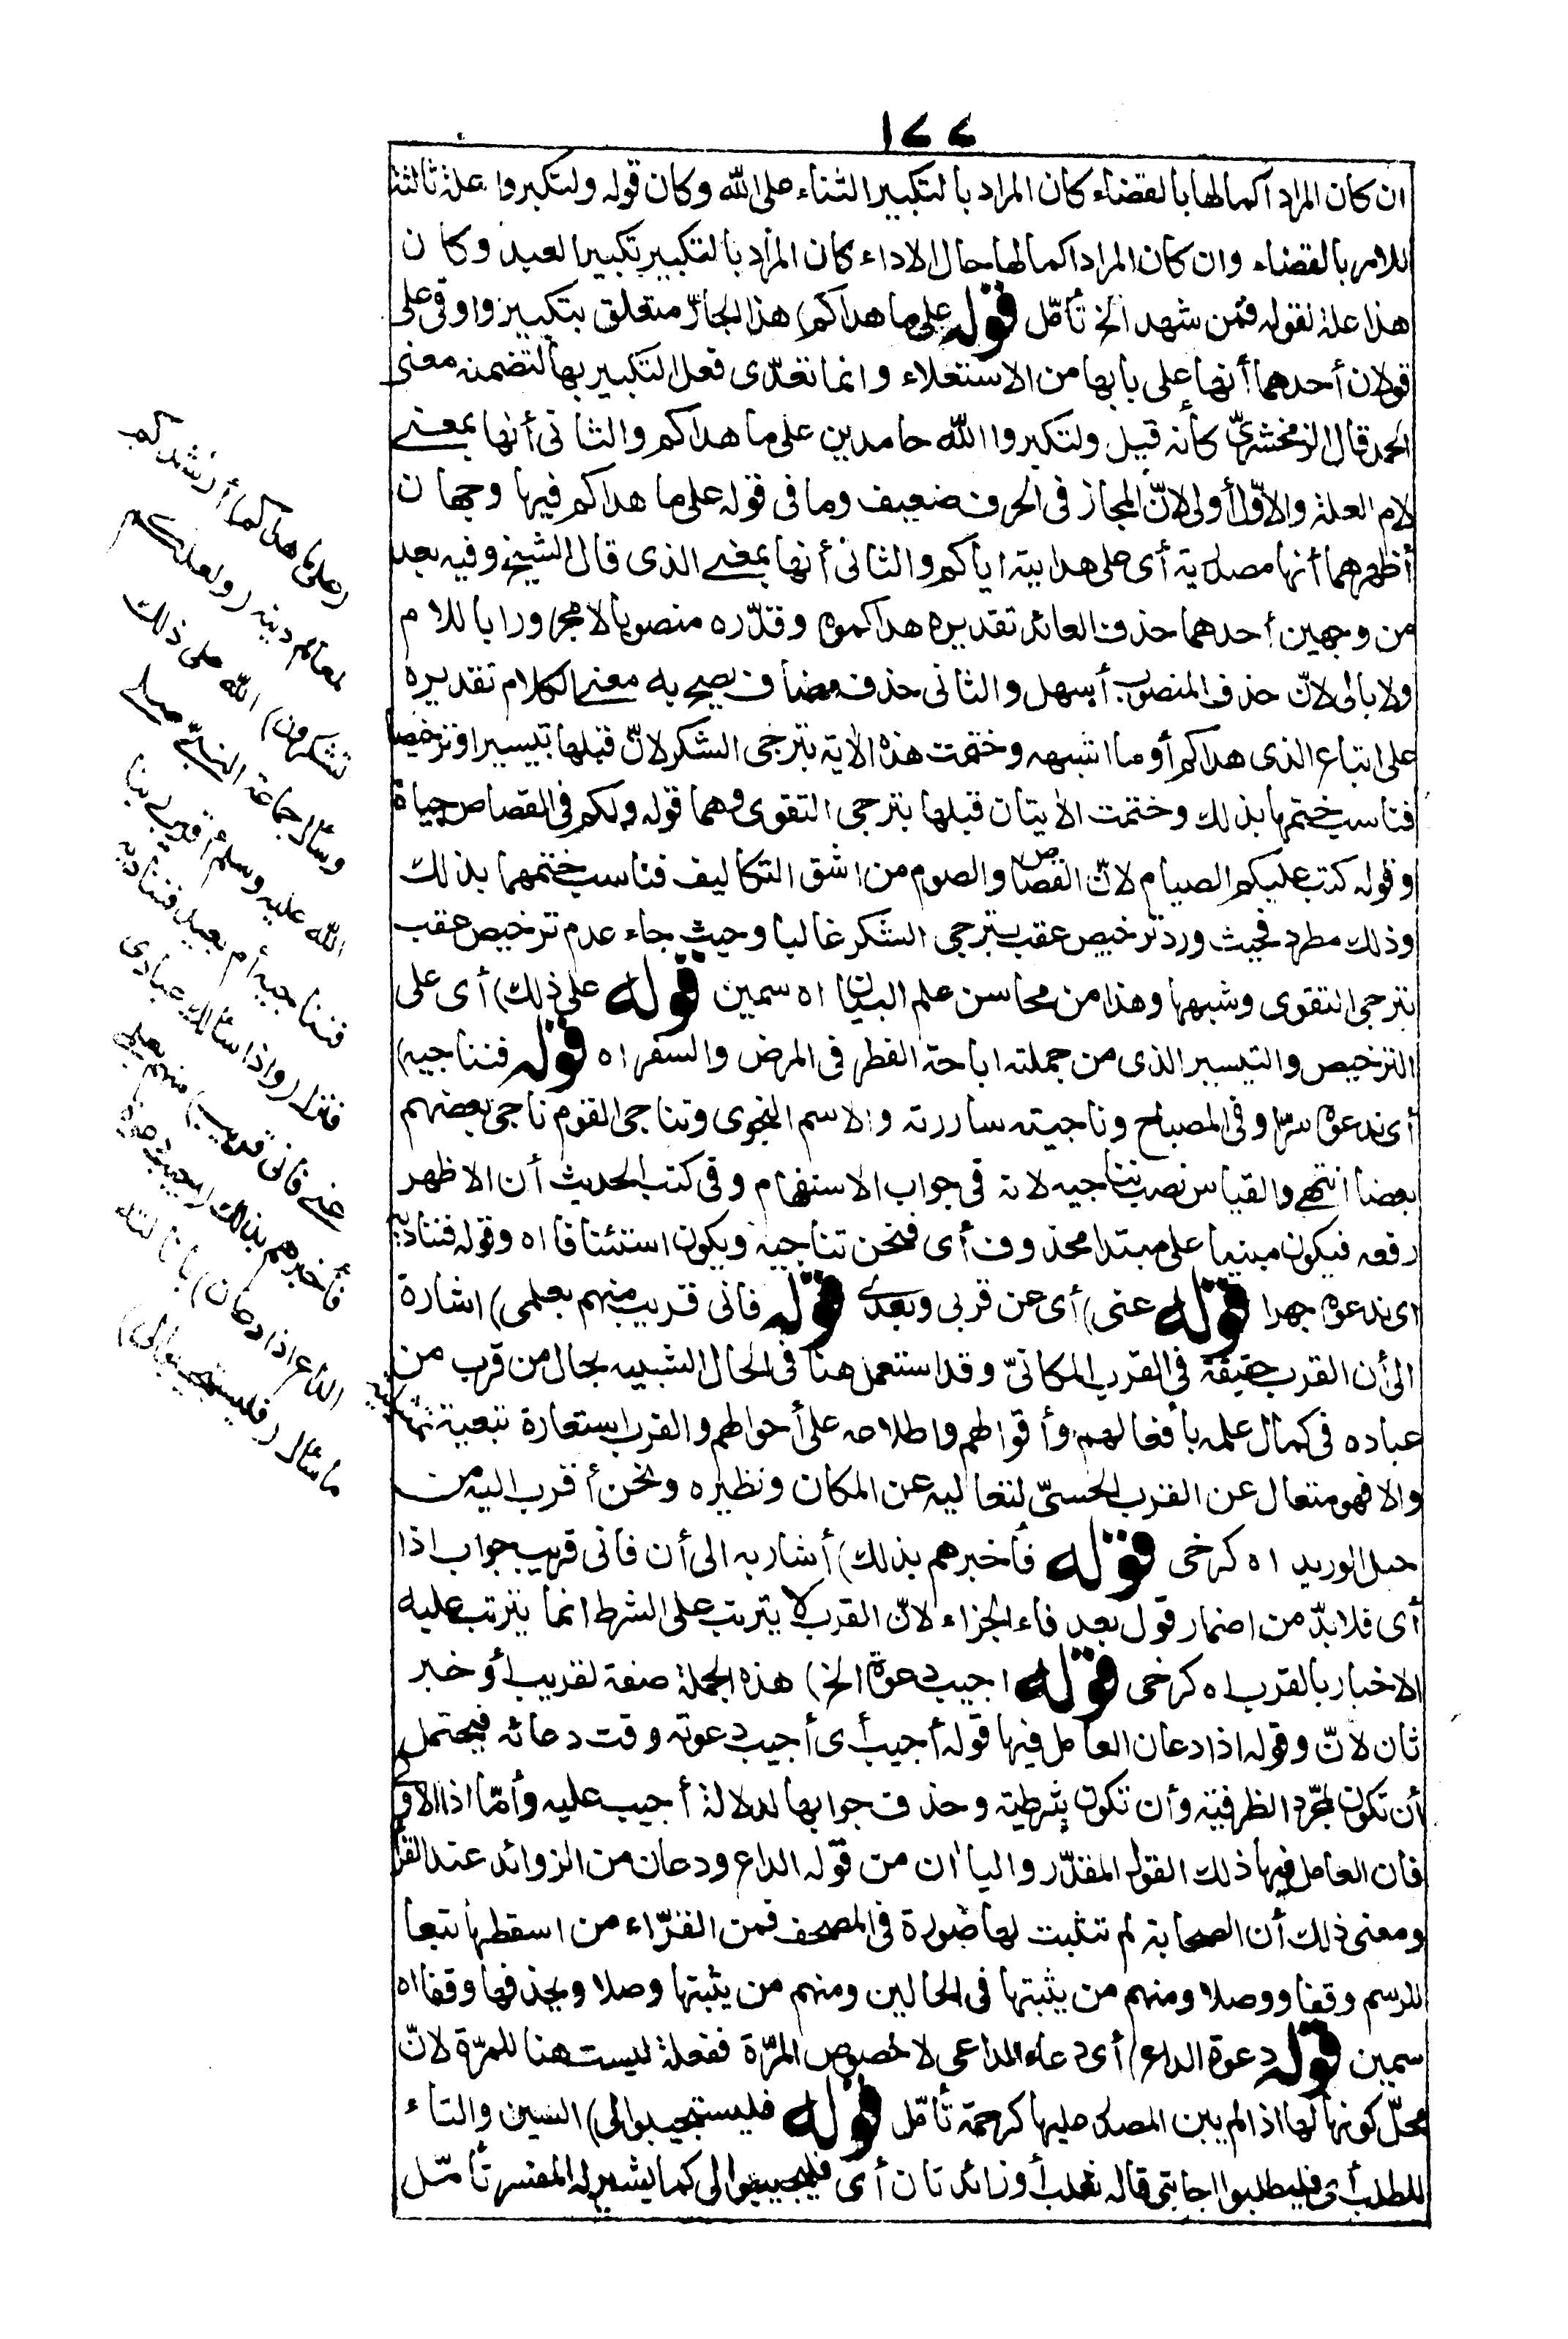 ١٧٧
ان كان المراد اكمالها بالقضاء كان المراد بالتكبير الثناء على الله وكان قوله ولتكبروا علة ثالثة
للامر بالقضاء وان كان المراد اكمالها حال الاداء كان المراد بالتكبير تكبير العيد وكان
هذا علة لقوله فمن شهد الخ تأمّل قوله على ما هداكم) هذا الجارّ متعلق بتكبيروا وفى على
قولان أحدهما أنها على بابها من الاستعلاء وانما تعدّى فعل التكبير بها لتضمنه معنى
الحمد قال الزمخشرىّ كأنه قيل ولتكبروا الله حامدين على ما هداكم والثانى أنها بمعنى
لام العلة والاوّل أولى لانّ المجاز فى الحرف ضعيف وما فى قوله على ما هداكم فيها وجهان
أظهرهما أنها مصدرية أى على هدايته اياكم والثانى أنها بمعنى الذى قال الشيخ وفيه بعد
من وجهين أحدهما حذف العائد تقديره هداكموه وقدّره منصوبا لا مجرورا باللام
ولا بالى لانّ حذف المنصوب أسهل والثانى حذف مضاف يصح به معنى الكلام تقديره
على اتباع الذى هداكم أو ما اشبهه وختمت هذه الاية بترجى الشكر لانّ قبلها تيسيرا وترخيصا
فناسب ختمها بذلك وختمت الايتان قبلها بترجى التقوى وهما قوله ولكم فى القصاص حياة
وقوله كتب عليكم الصيام لانّ القصاص والصوم من اشق التكاليف فناسب ختمهما بذلك
وذلك مطرد فحيث ورد ترخيص عقب بترجى الشكر غالبا وحيث جاء عدم ترخيص عقب
بترجى التقوى وشبهها وهذا من محاسن علم البيان اه سمين قوله على ذلك) أى على
الترخيص والتيسير الذى من جملته اباحة الفطر فى المرض والسفر اه قوله فنناجيه)
أى ندعوه سرّا وفى المصباح وناجيته ساررته والاسم النجوى وتناجى القوم ناجى بعضهم
بعضا انتهى والقياس نصب نناجيه لانه فى جواب الاستفهام وفى كتب الحديث أن الاظهر
رفعه فيكون مبنيا على مبتدا محذوف أى فنحن نناجيه ويكون استئنافا اه وقوله فنناديه
اى ندعوه جهرا قوله عنى) أى عن قربى وبعدى قوله فانى قريب منهم بعلمى) اشارة
الى أن القرب حقيقة فى القرب المكانىّ وقد استعمل هنا فى الحال الشبيه بحال من قرب من
عباده فى كمال علمه بأفعالهم وأقوالهم واطلاعه على أحوالهم والقرب استعارة تبعية تمثيلية
والا فهو متعال عن القرب الحسىّ لتعاليه عن المكان ونظيره ونحن أقرب اليه من
حبل الوريد اه كرخى قوله فأخبرهم بذلك) أشار به الى أن فانى قريب جواب اذا
أى فلا بدّ من اضمار قول بعد فاء الجزاء لانّ القرب لا يترتب على الشرط انما يترتب عليه
الاخبار بالقرب اه كرخى قوله اجيب دعوة الخ) هذه الجملة صفة لقريب أو خبر
ثان لانّ وقوله اذا دعان العامل فيها قوله أجيب أى أجيب دعوته وقت دعائه فيحتمل
أن تكون لمجرّد الظرفية وأن تكون شرطية وحذف جوابها لدلالة أجيب عليه وأمّا اذا الاولى
فان العامل فيها ذلك القول المقدّر والياءان من قوله الداع ودعان من الزوائد عند القرا
ومعنى ذلك أن الصحابة لم تثبت لها صورة فى المصحف فمن القرّاء من اسقطها تبعا
للرسم وقفا ووصلا ومنهم من يثبتها فى الحالين ومنهم من يثبتها وصلا ويحذفها وقفا اه
سمين قوله دعوة الداع) أى دعاء الداعى لا خصوص المرّة ففعلة ليست هنا للمرّة لانّ
محلّ كونها لها اذا لم يبن المصدر عليها كرحمة تأمّل قوله فليستجيبوا لى) السين والتاء
للطلب أى فليطلبوا اجابتى قاله ثعلب أو زائدتان أى فليجيبوا لى كما يشير له المفسر تأمّل
(على ما هداكم) أرشدكم
لمعالم دينه (ولعلكم
تشكرون) الله على ذلك
وسأل جماعة النبىّ صلى
الله عليه وسلم أقريب ربنا
فنناجيه أم بعيد فنناديه
فنزل (واذا سألك عبادى
عنى فانى قريب) منهم بعلمى
فأخبرهم بذلك (اجيب دعوة
الداع اذا دعان) بانالته
ما سأل (فليستجيبوا لى)